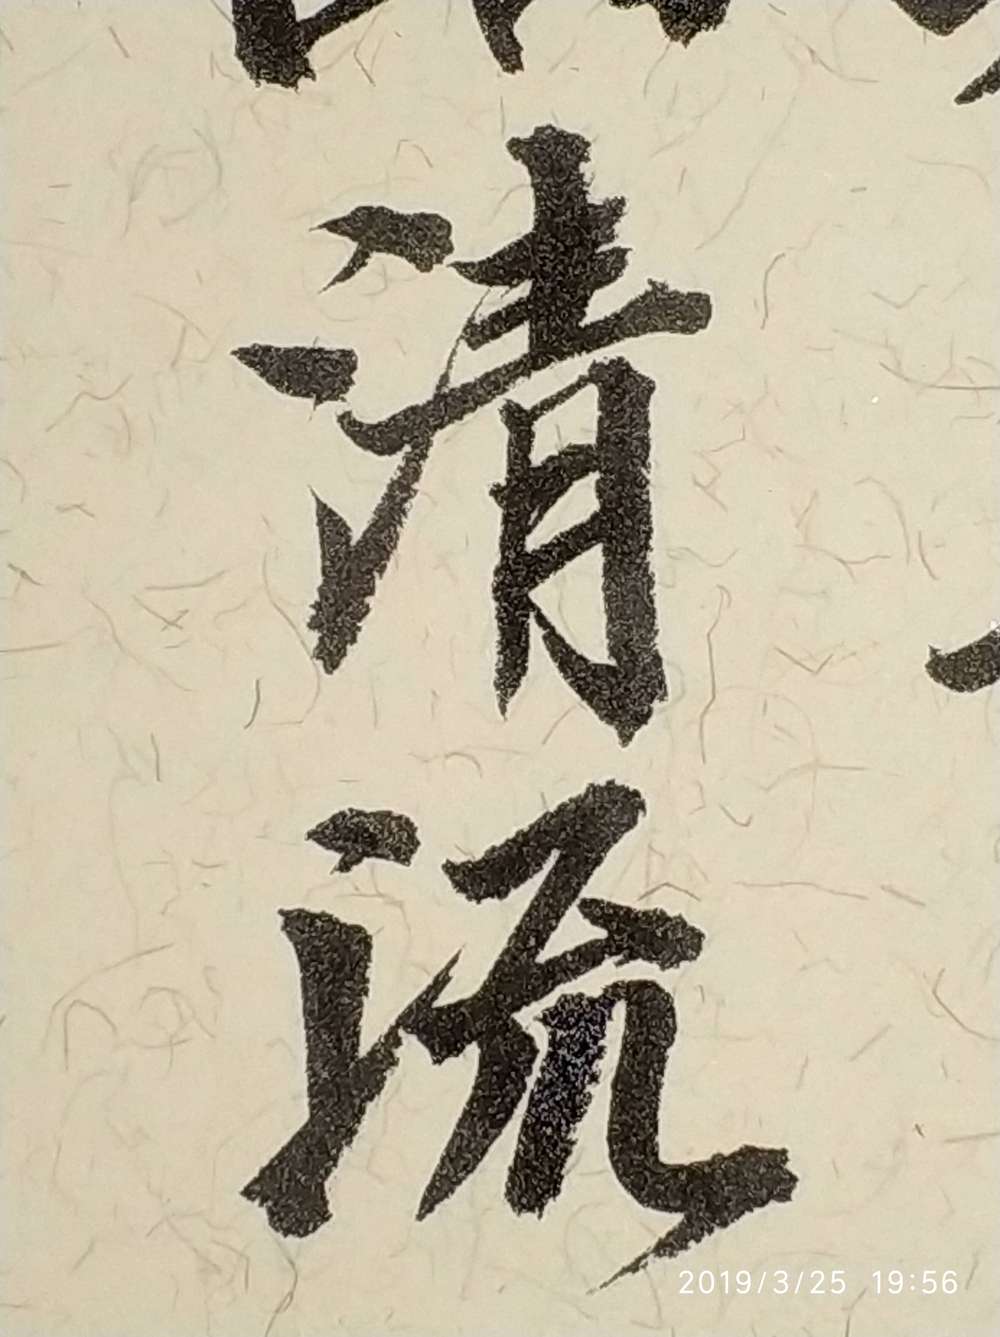 清流
2019/3/25 19:56